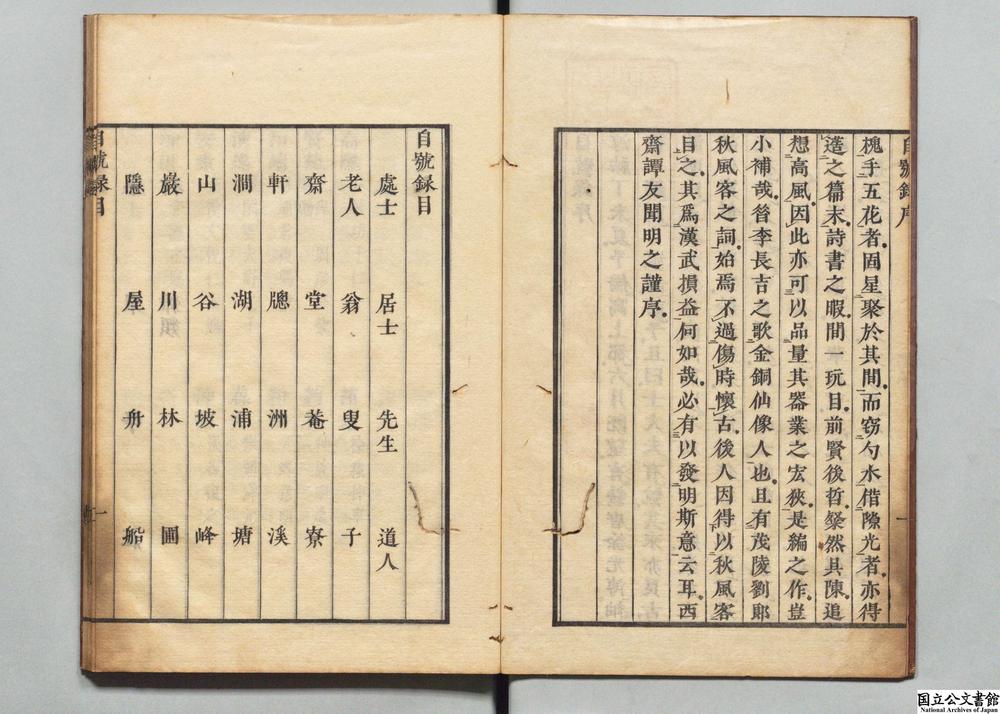 自號錄序
槐手五花者固星聚於其間而窃勺水借隙光者亦得
造之篇末詩書之暇間一玩目前賢後哲粲然具陳追
想高風因此亦可以品量其器業之宏狹是編之作豈
小補哉昝李長吉之歌金銅仙像人也且有茂陵劉郎
秋風客之詞始焉不過傷時懷古後人因得以秋風客
目之其爲漢武損益何如哉必有以發明斯意云耳西
齋譚友聞明之謹序
一
自號録目
處士 居士 先生 道人
老人 翁 叟 子
齋 堂 菴 寮
軒 牕 洲 溪
澗 湖 浦 塘
山 谷 坡 峰
巖 川 林 圃
隱 屋 舟 船
自號録目
一
国立公文書館
National Archives of Japan